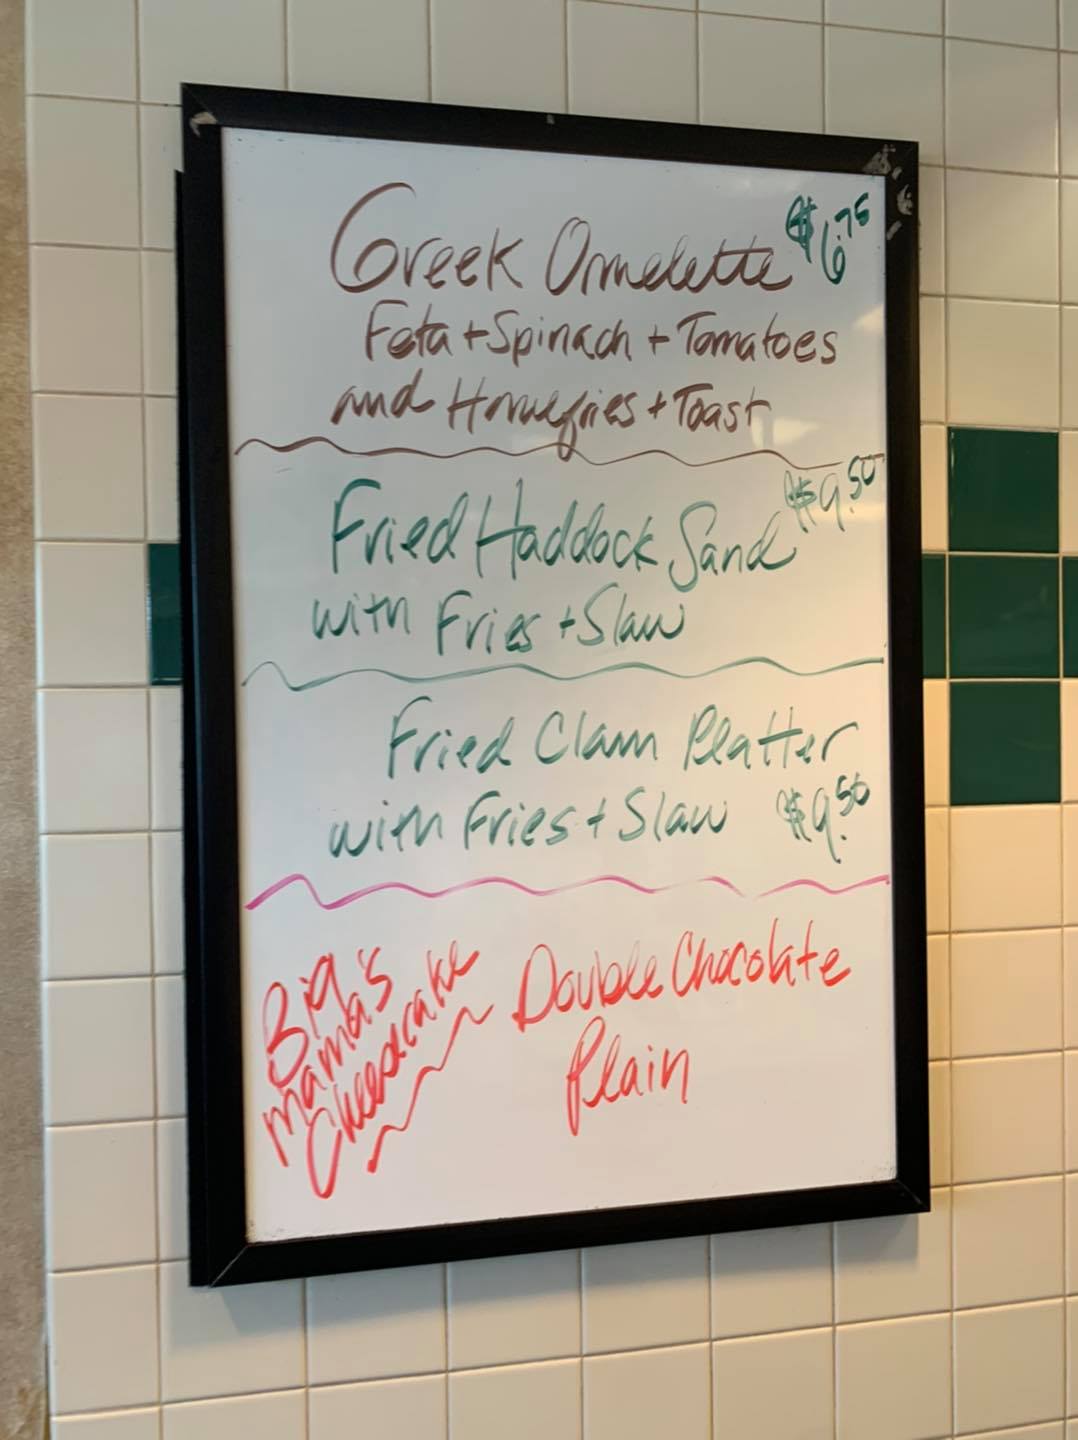 Greek Omelette $6.75
Feta + Spinach + Tomatoes
and Homefries + Toast
Fried Haddock Sand $9.50
with Fries + Slaw
Fried Clam Platter
with Fries + Slaw $9.50
Big
Mama's
Cheesecake
Double Chocolate
Plain